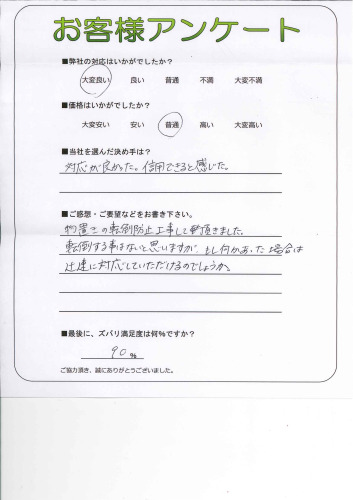 お客様アンケート
■弊社の対応はいかがでしたか?
大変良い 良い 普通 不満 大変不満
■価格はいかがでしたか?
大変安い 安い 普通 高い 大変高い
■当社を選んだ決め手は?
対応が良かった。信用できると感じた。
■ご感想・ご要望などをお書き下さい。
物置きの転倒防止工事して頂きました。
転倒する事はないと思いますが、もし何かあった場合は
迅速に対応していただけるのでしょうか。
■最後に、ズバリ満足度は何%ですか?
90%
ご協力頂き、誠にありがとうございました。